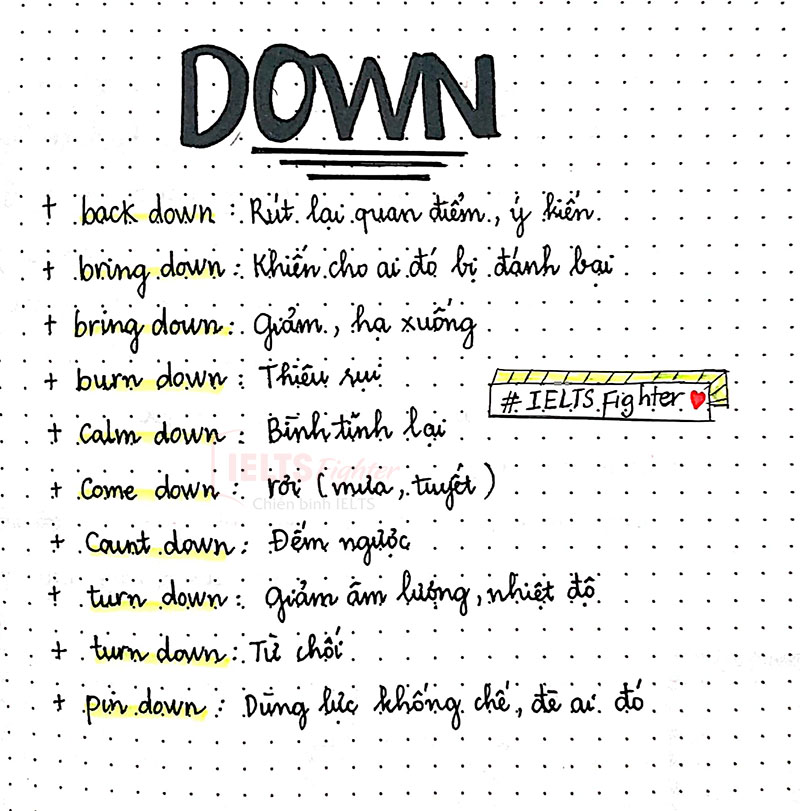 DOWN
+ back down : Rút lại quan điểm, ý kiến.
+ bring down : Khiến cho ai đó bị đánh bại
+ bring down : Giảm, hạ xuống
+ burn down : Thiêu rụi
# IELTS Fighter
+ Calm down : Bình tĩnh lại
IELTS Fighter
+ Come down : rơi (mưa, tuyết)
Chiến binh IELTS
+ Count down : Đếm ngược
+ turn down : Giảm âm lượng, nhiệt độ
+ turn down : Từ chối
+ pin down : Dùng lực khống chế, đè ai đó